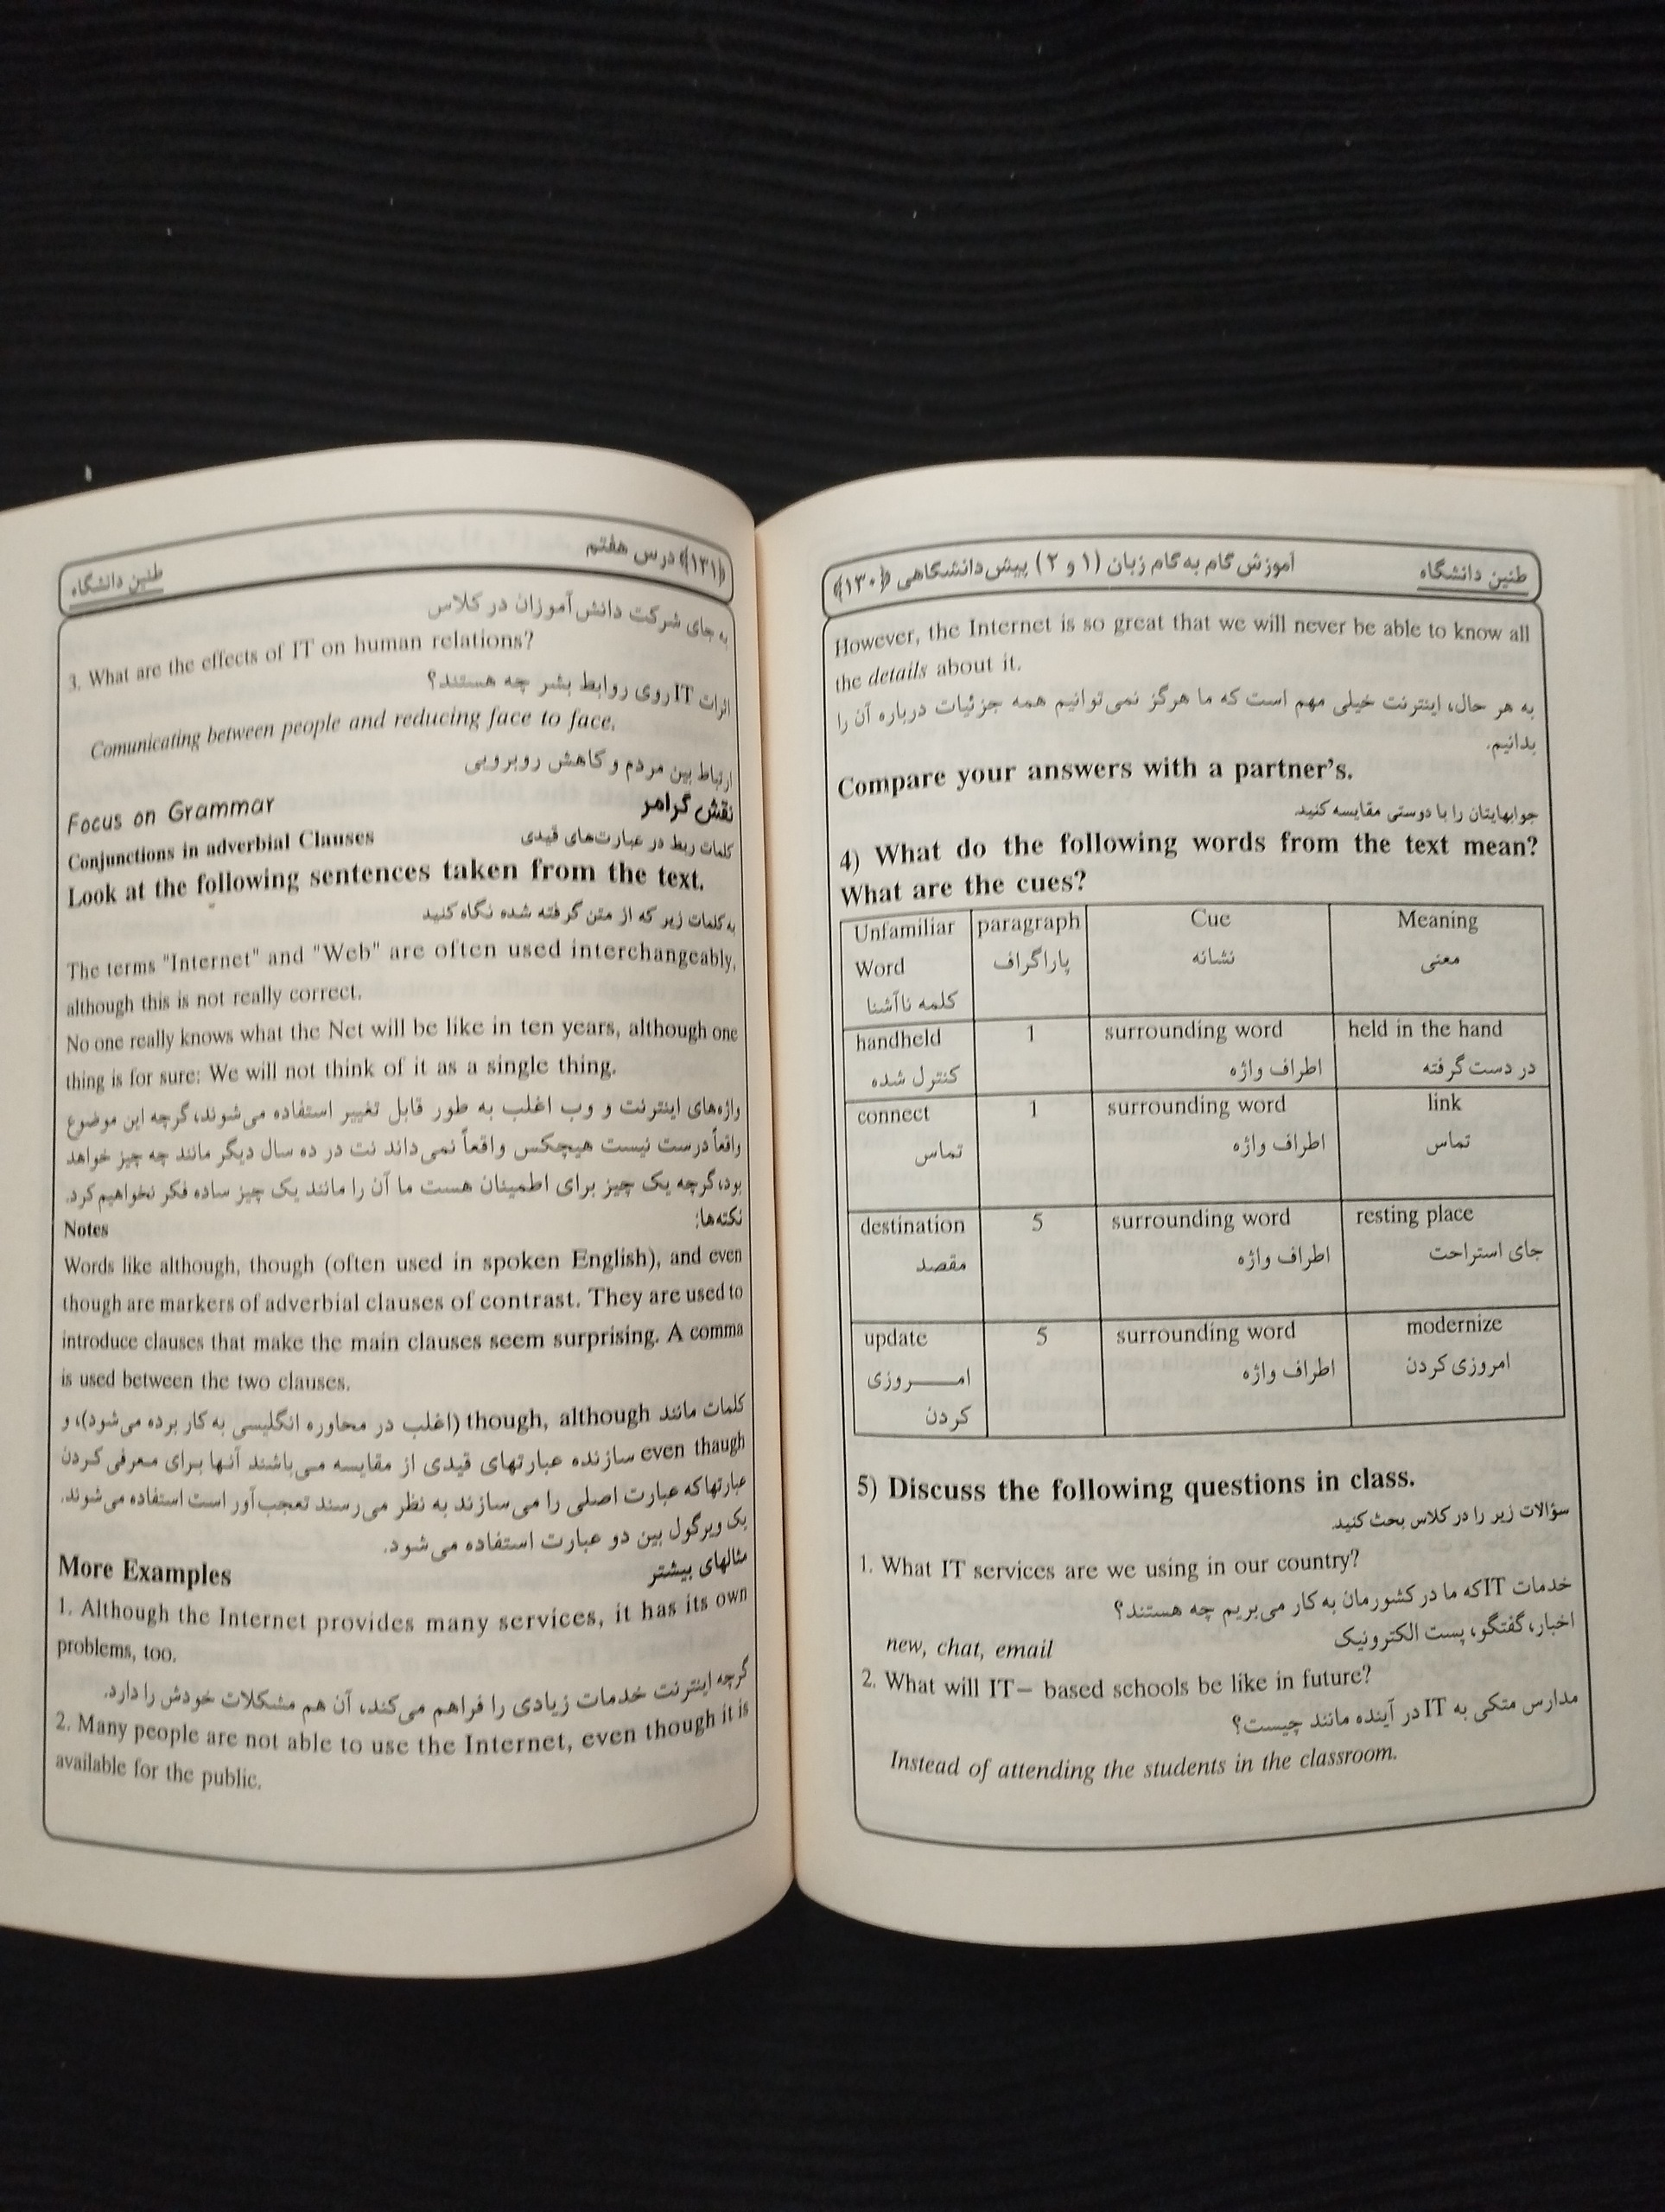 طنین دانشگاه
آموزش گام به گام زبان (۱ و ۲) پیش‌دانشگاهی ﴿۱۳۰﴾
However, the Internet is so great that we will never be able to know all
the details about it.
به هر حال، اینترنت خیلی مهم است که ما هرگز نمی‌توانیم همه جزئیات درباره آن را
بدانیم.
Compare your answers with a partner's.
جوابهایتان را با دوستی مقایسه کنید.
4) What do the following words from the text mean?
What are the cues?
Unfamiliar paragraph Cue Meaning
Word پاراگراف نشانه معنی
کلمه ناآشنا
handheld 1 surrounding word held in the hand
کنترل شده اطراف واژه در دست گرفته
connect 1 surrounding word link
تماس اطراف واژه تماس
destination 5 surrounding word resting place
مقصد اطراف واژه جای استراحت
update 5 surrounding word modernize
امـــروزی اطراف واژه امروزی کردن
کردن
5) Discuss the following questions in class.
سؤالات زیر را در کلاس بحث کنید.
1. What IT services are we using in our country?
خدمات IT که ما در کشورمان به کار می‌بریم چه هستند؟
new, chat, email اخبار، گفتگو، پست الکترونیک
2. What will IT– based schools be like in future?
مدارس متکی به IT در آینده مانند چیست؟
Instead of attending the students in the classroom.
﴿۱۳۱﴾ درس هفتم
طنین دانشگاه
به جای شرکت دانش‌آموزان در کلاس
3. What are the effects of IT on human relations?
اثرات IT روی روابط بشر چه هستند؟
Comunicating between people and reducing face to face.
ارتباط بین مردم و کاهش روبرویی
Focus on Grammar نقش گرامر
Conjunctions in adverbial Clauses کلمات ربط در عبارت‌های قیدی
Look at the following sentences taken from the text.
به کلمات زیر که از متن گرفته شده نگاه کنید.
The terms "Internet" and "Web" are often used interchangeably,
although this is not really correct.
No one really knows what the Net will be like in ten years, although one
thing is for sure: We will not think of it as a single thing.
واژه‌های اینترنت و وب اغلب به طور قابل تغییر استفاده می‌شوند، گرچه این موضوع
واقعاً درست نیست هیچکس واقعاً نمی‌داند نت در ده سال دیگر مانند چه چیز خواهد
بود، گرچه یک چیز برای اطمینان هست ما آن را مانند یک چیز ساده فکر نخواهیم کرد.
Notes نکته‌ها:
Words like although, though (often used in spoken English), and even
though are markers of adverbial clauses of contrast. They are used to
introduce clauses that make the main clauses seem surprising. A comma
is used between the two clauses.
کلمات مانند though, although (اغلب در محاوره انگلیسی به کار برده می‌شود)، و
even thaugh سازنده عبارتهای قیدی از مقایسه می‌باشند آنها برای معرفی کردن
عبارتها که عبارت اصلی را می‌سازند به نظر می‌رسند تعجب‌آور است استفاده می‌شوند.
یک ویرگول بین دو عبارت استفاده می‌شود.
More Examples مثالهای بیشتر
1. Although the Internet provides many services, it has its own
problems, too.
گرچه اینترنت خدمات زیادی را فراهم می‌کند، آن هم مشکلات خودش را دارد.
2. Many people are not able to use the Internet, even though it is
available for the public.